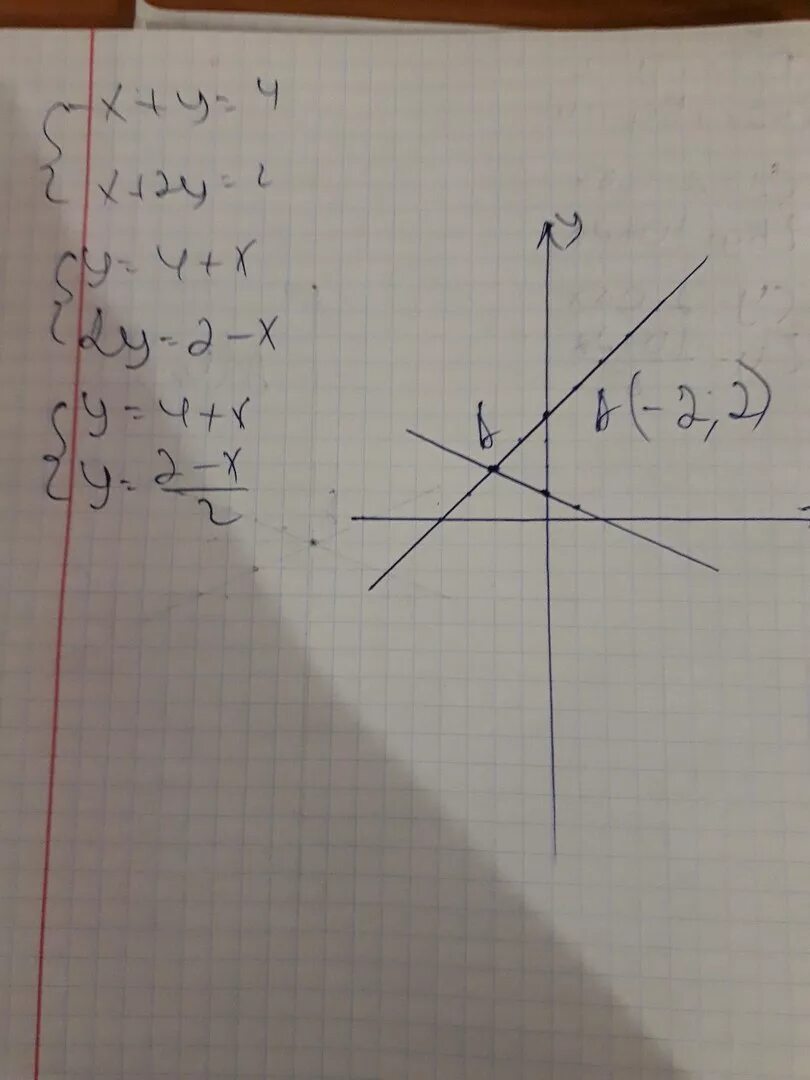 {-x+y=4
x+2y=2
{y=4+x
2y=2-x
{y=4+x
y=2-x/2
y
A
A(-2;2)